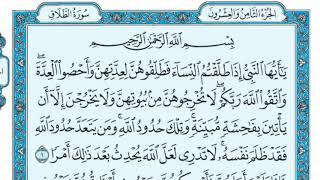 سُورَةُ الطَّلَاقِ الجُزْءُ الثَّامِنُ وَالعِشْرُونَ
بِسْمِ اللَّهِ الرَّحْمَٰنِ الرَّحِيمِ
يَٰٓأَيُّهَا النَّبِيُّ إِذَا طَلَّقْتُمُ النِّسَآءَ فَطَلِّقُوهُنَّ لِعِدَّتِهِنَّ وَأَحْصُوا الْعِدَّةَ ۖ
وَاتَّقُوا اللَّهَ رَبَّكُمْ ۖ لَا تُخْرِجُوهُنَّ مِنۢ بُيُوتِهِنَّ وَلَا يَخْرُجْنَ إِلَّآ أَن
يَأْتِينَ بِفَٰحِشَةٍ مُّبَيِّنَةٍ ۚ وَتِلْكَ حُدُودُ اللَّهِ ۚ وَمَن يَتَعَدَّ حُدُودَ اللَّهِ
فَقَدْ ظَلَمَ نَفْسَهُۥ ۚ لَا تَدْرِي لَعَلَّ اللَّهَ يُحْدِثُ بَعْدَ ذَٰلِكَ أَمْرًا ١